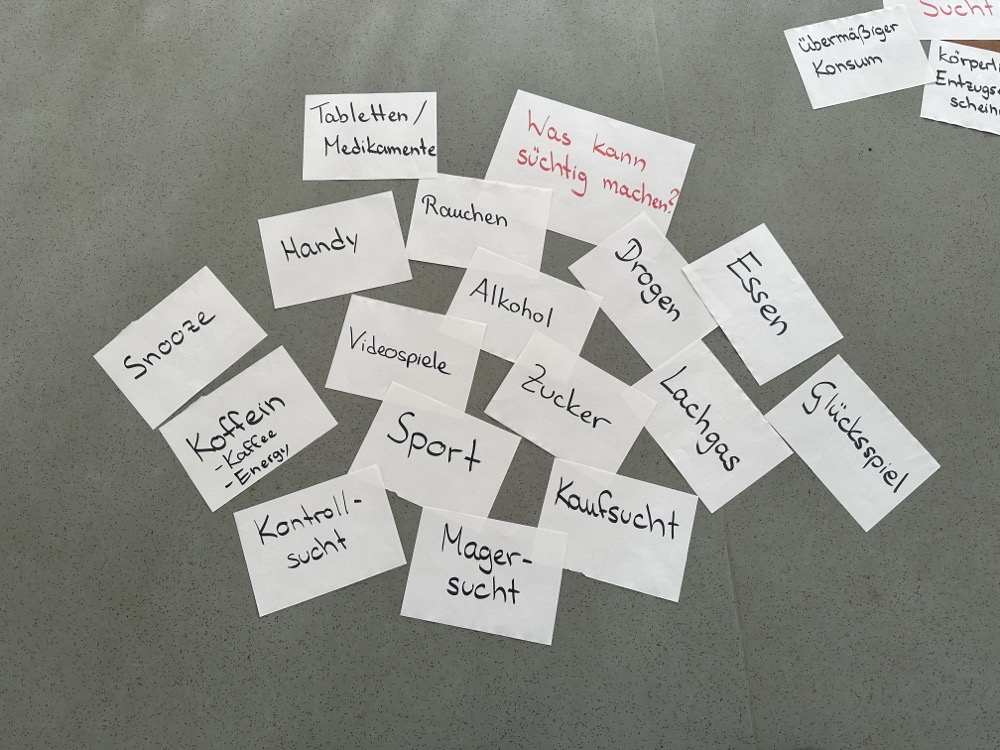 Sucht
übermäßiger
Konsum
Was kann
süchtig machen?
Tabletten/
Medikamente
Rauchen
Handy
Drogen
Essen
Alkohol
Snooze
Videospiele
Zucker
Lachgas
Glücksspiel
Koffein
-Kaffee
-Energy
Sport
Kaufsucht
Kontroll-
sucht
Mager-
sucht